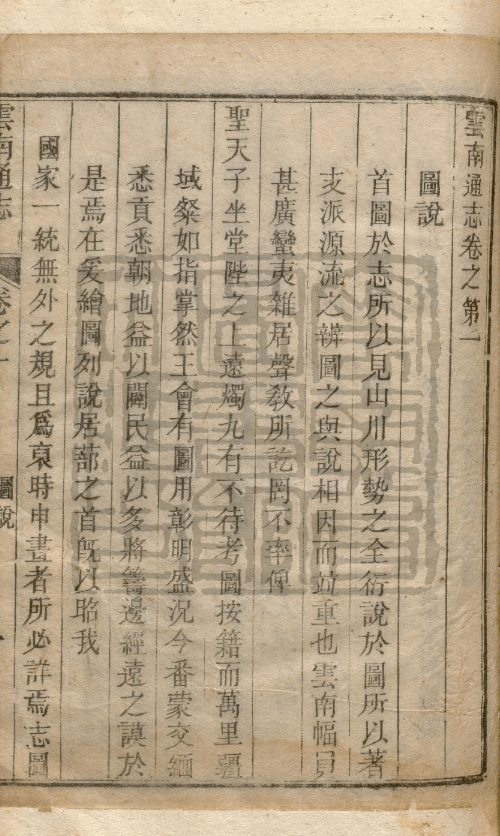 雲南通志卷之第一
圖說
首圖於志所以見山川形勢之全衍說於圖所以著
支派源流之辨圖之與說相因而竝重也雲南幅員
甚廣蠻夷雜居聲敎所訖罔不率俾
聖天子坐堂陛之上遠燭九有不待考圖按籍而萬里疆
域粲如指掌然王會有圖用彰明盛況今番蒙交緬
悉貢悉朝地益以闢民益以多將籌邊經遠之謨於
是焉在爰繪圖列說居蔀之首旣以昭我
國家一統無外之規且爲裒時申畫者所必詳焉志圖
雲南通志
卷之一
圖說